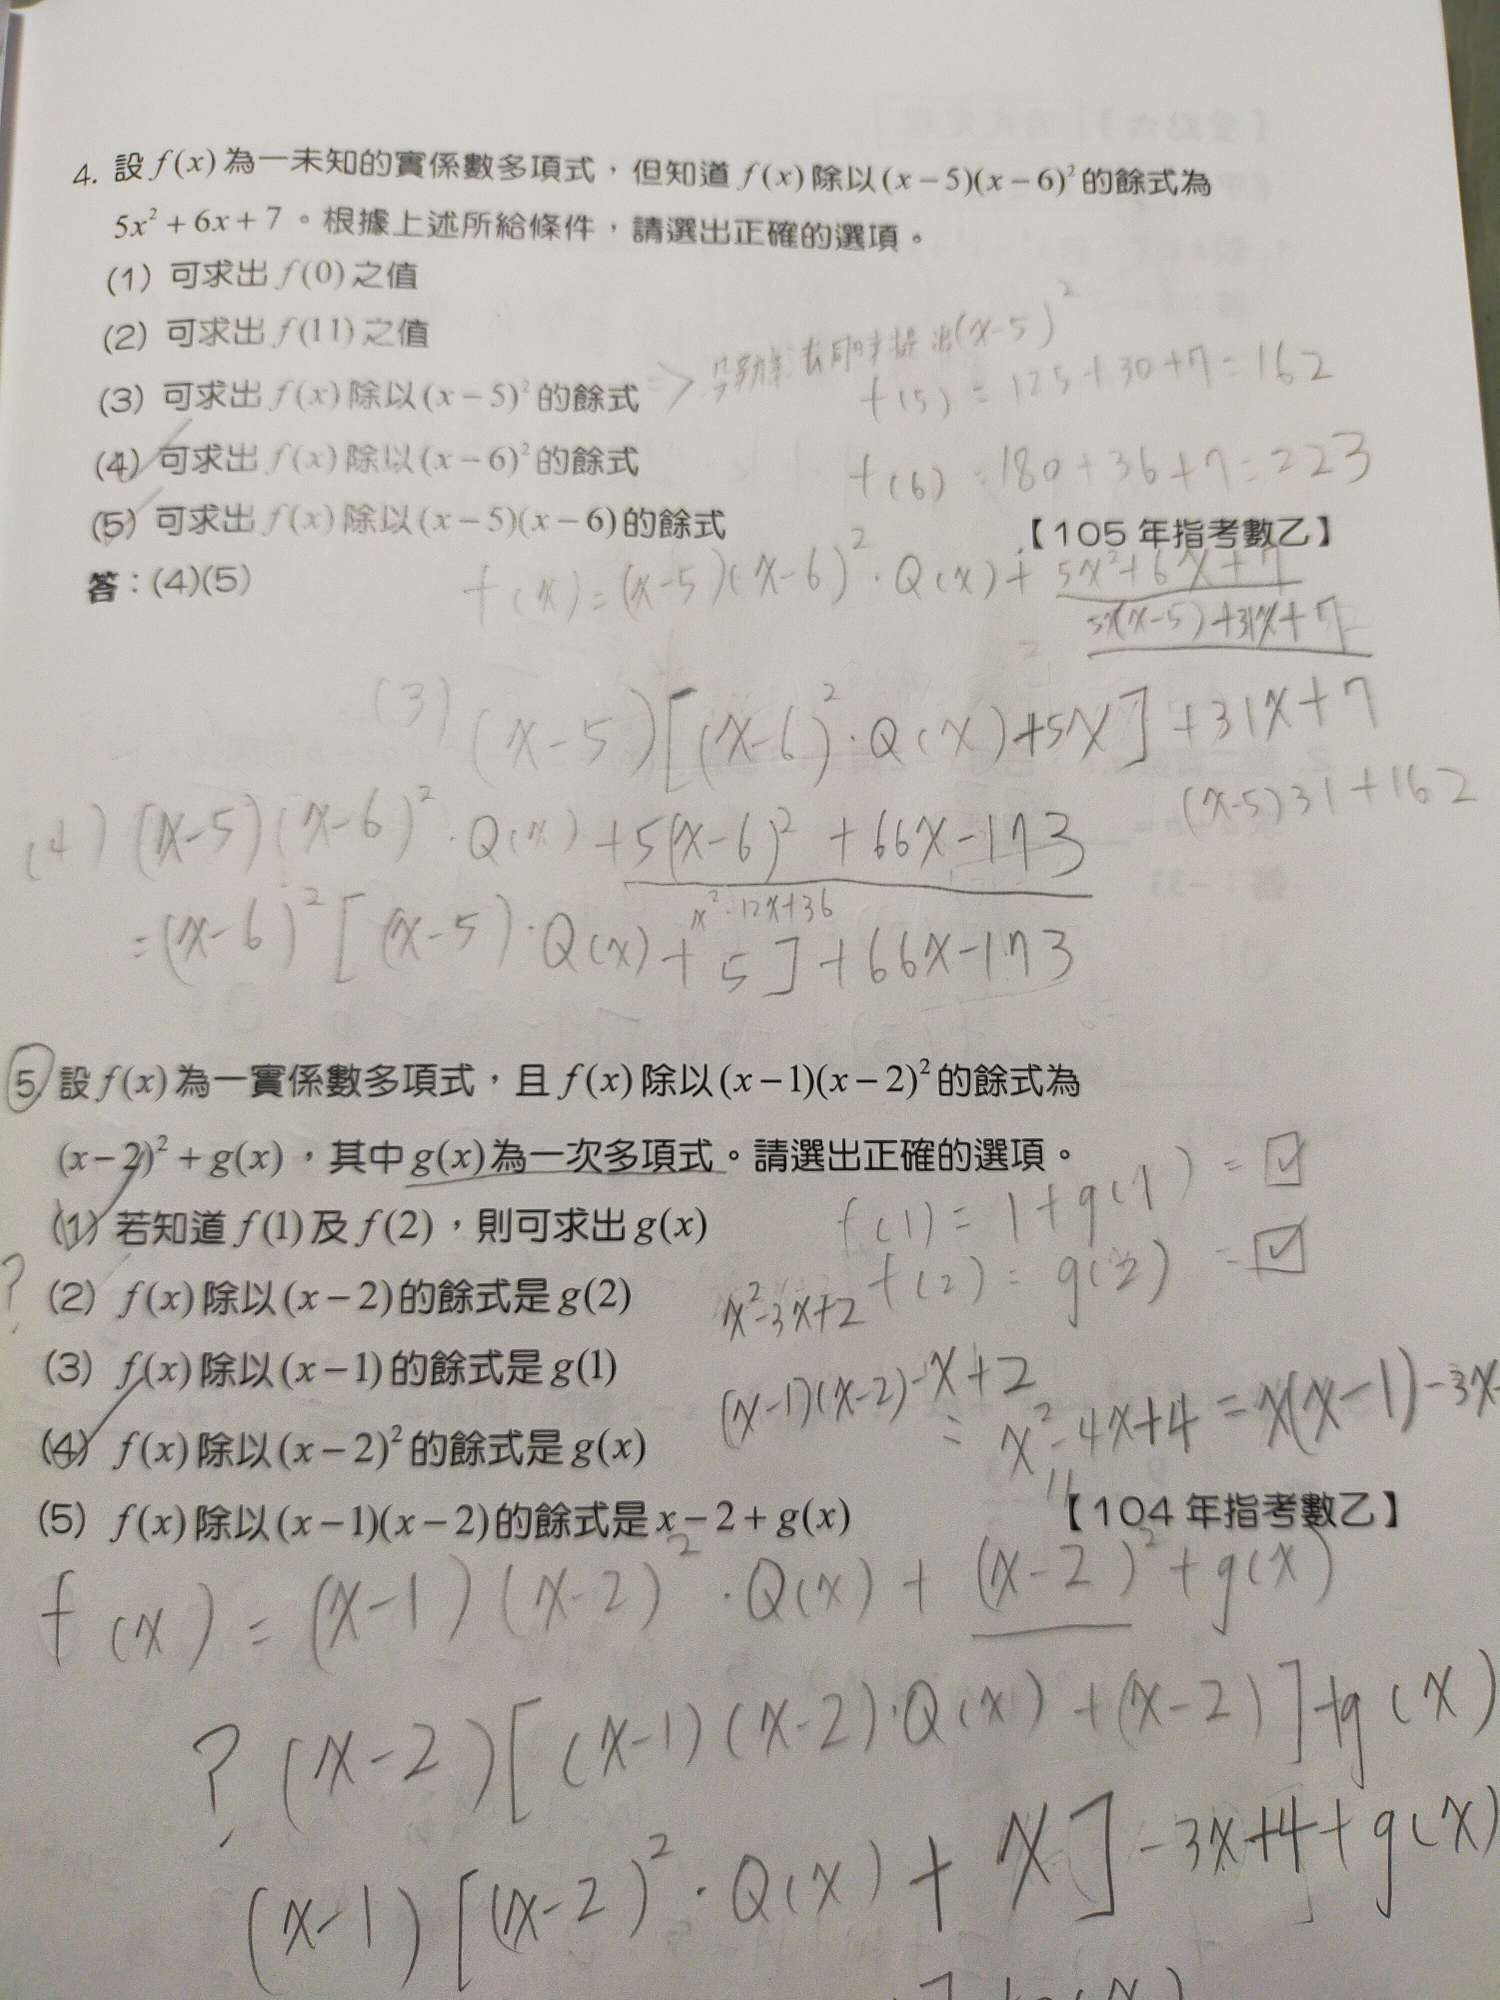 4. 設 f(x) 為一未知的實係數多項式，但知道 f(x) 除以 (x－5)(x－6)² 的餘式為
5x²＋6x＋7。根據上述所給條件，請選出正確的選項。
(1) 可求出 f(0) 之值
(2) 可求出 f(11) 之值
(3) 可求出 f(x) 除以 (x－5)² 的餘式
(x-5)²
f(5) = 125+30+7=162
(4) 可求出 f(x) 除以 (x－6)² 的餘式
f(6) =180+36+7=223
(5) 可求出 f(x) 除以 (x－5)(x－6) 的餘式
【105 年指考數乙】
答：(4)(5)
f(x)=(x-5)(x-6)²·Q(x)+5x²+6x+7
5x(x-5)+31x+7
(3) (x-5)[(x-6)²·Q(x)+5x]+31x+7
(x-5)31+162
(4) (x-5)(x-6)²·Q(x)+5(x-6)²+66x-173
x²-12x+36
=(x-6)²[(x-5)·Q(x)+5]+66x-173
5. 設 f(x) 為一實係數多項式，且 f(x) 除以 (x－1)(x－2)² 的餘式為
(x－2)²＋g(x)，其中 g(x) 為一次多項式。請選出正確的選項。
f(1)=1+g(1)=☑
(1) 若知道 f(1) 及 f(2)，則可求出 g(x)
f(2)=g(2)=☑
? (2) f(x) 除以 (x－2) 的餘式是 g(2)
x²-3x+2
(3) f(x) 除以 (x－1) 的餘式是 g(1)
(x-1)(x-2)-x+2
= x²-4x+4=x(x-1)-3x
(4) f(x) 除以 (x－2)² 的餘式是 g(x)
(5) f(x) 除以 (x－1)(x－2) 的餘式是 x－2＋g(x)
【104 年指考數乙】
f(x)=(x-1)(x-2)²·Q(x)+(x-2)²+g(x)
? (x-2)[(x-1)(x-2)·Q(x)+(x-2)]+g(x)
(x-1)[(x-2)²·Q(x)+x]-3x+4+g(x)